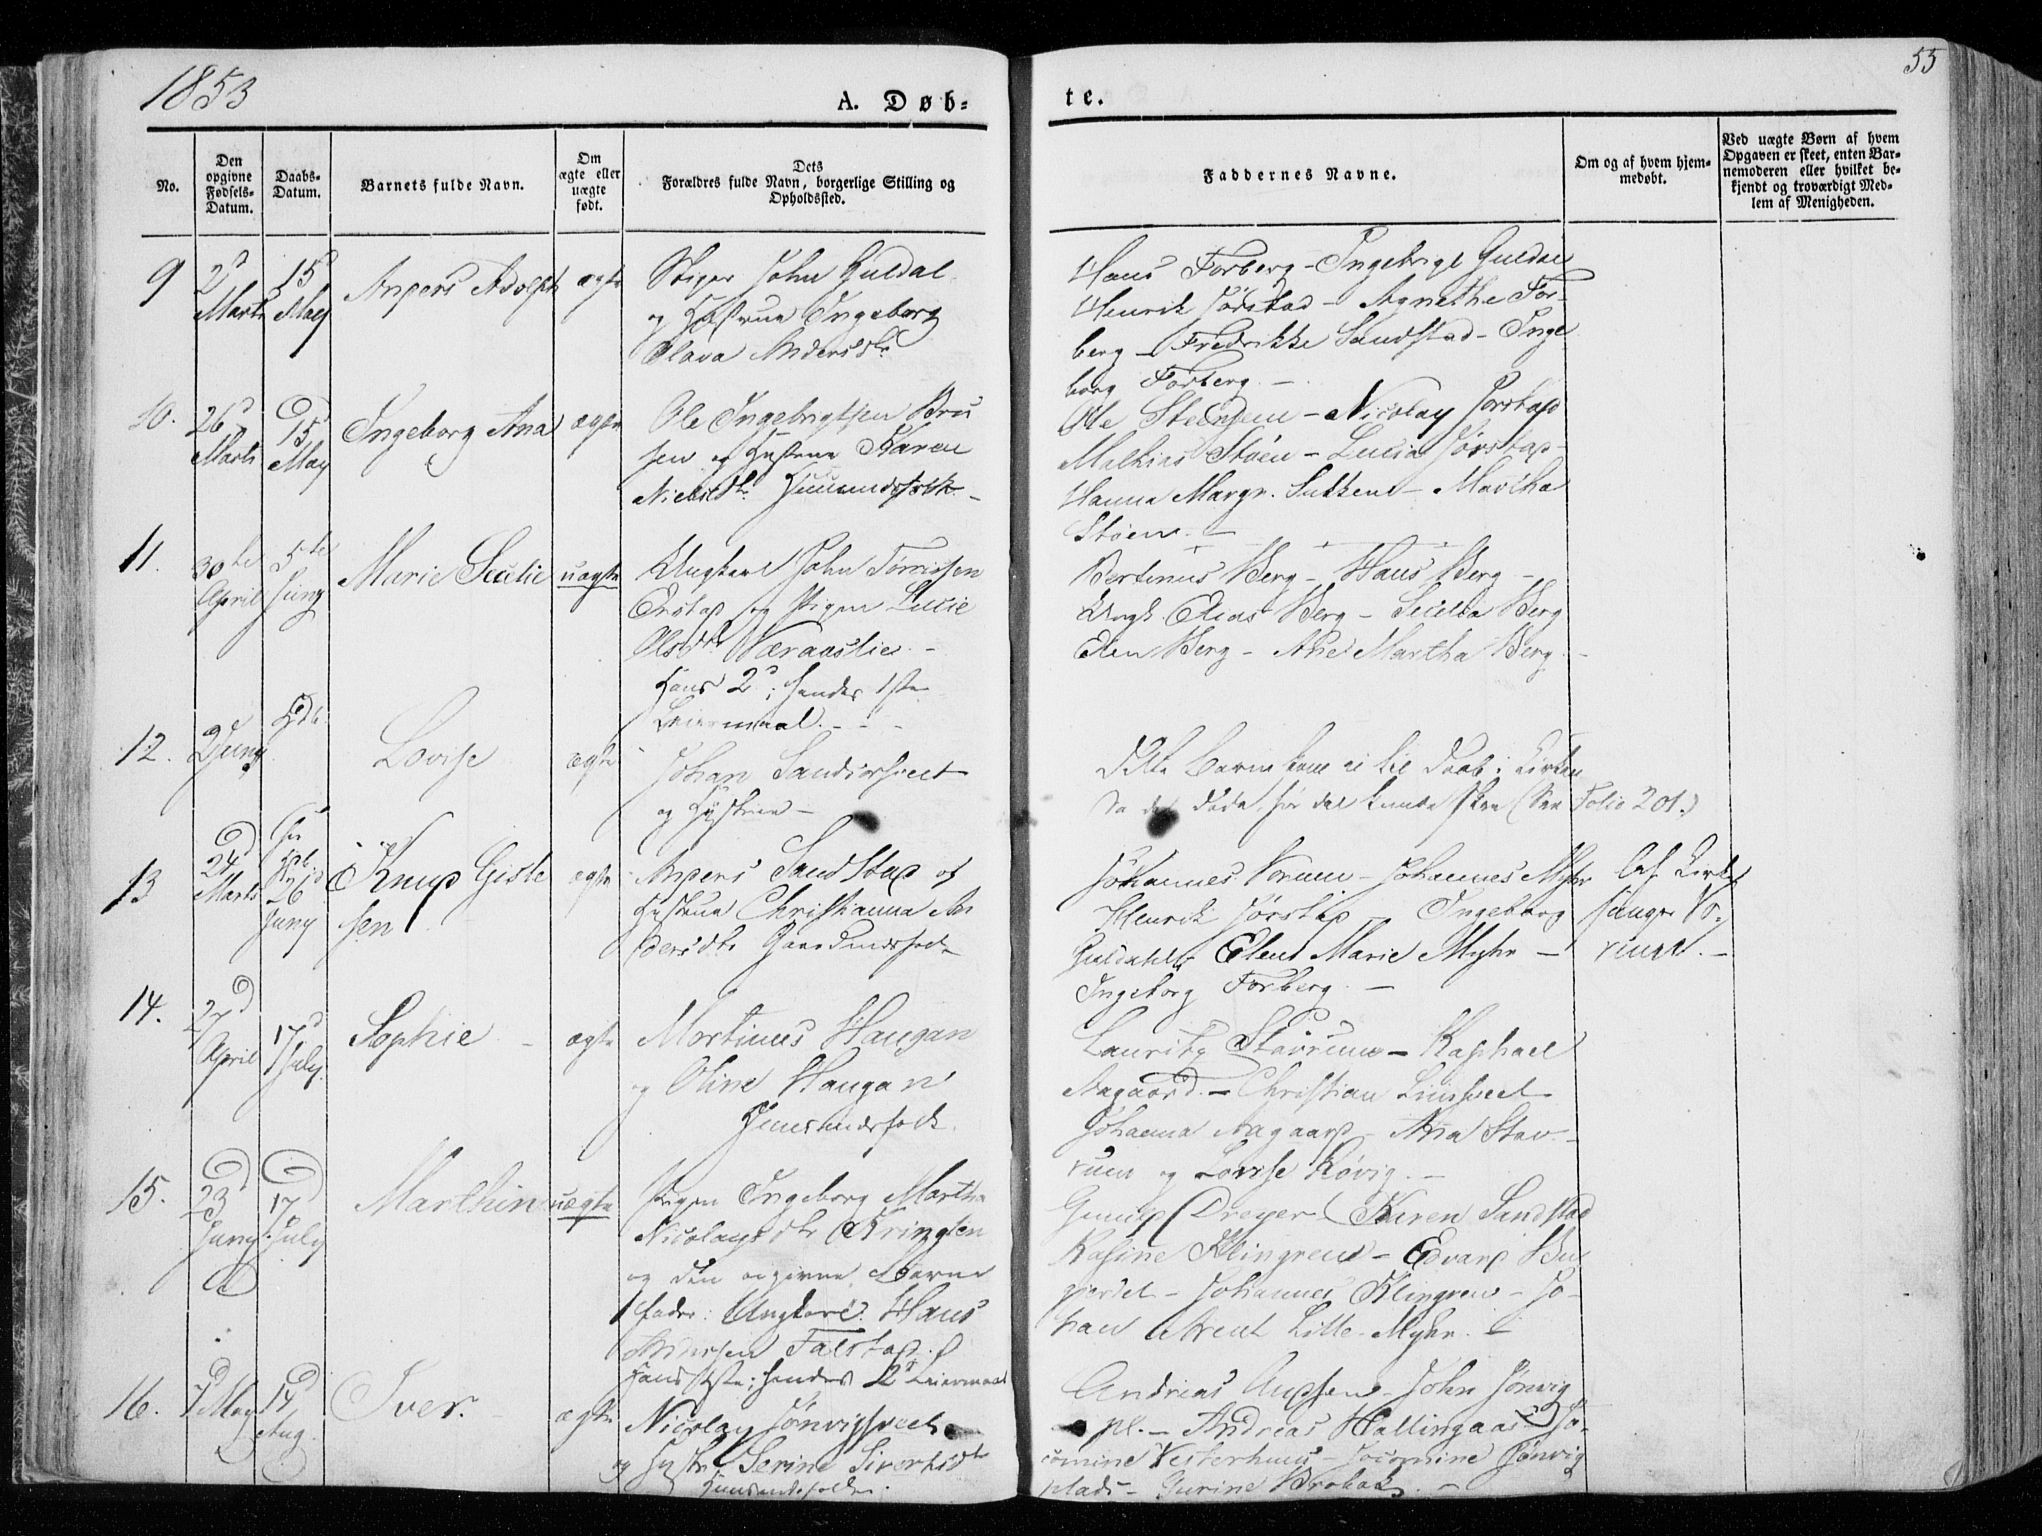 1853
A. Døb=
te.
55
No.
Den opgivne Fødsels-Datum.
Daabs-Datum.
Barnets fulde Navn.
Om ægte eller uægte født.
Dets Forældres fulde Navn, borgerlige Stilling og Opholdssted.
Faddernes Navne.
Om og af hvem hjemmedøbt.
Ved uægte Børn af hvem Opgaven er skeet, enten Barnemoderen eller hvilket bekjendt og troværdigt Medlem af Menigheden.
9
2d Marts
15d May
Anders Adolph
ægte
John Guldal
og Hustrue Ingeborg
Olava Andersdtr
Hans Forberg - Ingebrigt Guldal
Henrik Jörstad - Agnethe For-
berg - Fredrikke Sandstad - Inge
borg Forberg. -
10.
26d Marts
15d May
Ingeborg Ana
ægte
Ole Ingebrigtsen Bru
sen og Hustrue Karen
Nielsdtr. Huusmandsfolk. -
Ole Steensen - Nicolay Jörstad
Mathias Stöen - Lucia Jörstad
Hanna Margr. - Martha
Stöen. -
11.
30te April
5te Juny
Marie Secilie
uægte
Ungkarl John Törrissen
og Pigen Lucie
Olsdtr Væraaslie. -
Hans 2d; hendes 1ste
Leiermaal. - -
Bertinus Berg - Hans Berg -
Ungk. Elias Berg - Secilia Berg
Elen Berg - Ane Martha Berg. -
12.
2 Juny
Lovise
ægte
Johan
og Hustrue -
Dette Barn kom ei til Daab i Kirken
da det döde, för det kunde skee (See Folio 201.)
13
24d Marts
26 Juny
Knud Giste
sen
ægte
Anders Sandstad og
Hustrue Christianna An
dersdtr Gaardmandsfolk
Johannes Vorum - Johannes Myhr
Henrik Jörstad - Ingeborg
Guldahl, Elen Marie Myhr -
Ingeborg Forberg. -
af Kirke
sanger Vo-
rum. -
14.
27d April
17d July
Sophie -
ægte
Mortinus Haugan
og Oline Haugan
Huusmandsfolk.
Lauritz Stavrum - Raphael
Aagaard. - Christian
Johanna Aagaard - Ana Stav-
rum og Lovise Rövig. -
15.
23 Juny
17 July
Marthin
uægte
Pigen Ingeborg Martha
Nicolaysdtr Kringlen
og den opgivne Barne
fader: Ungkarl Hans
Andersen Falstad.
Hans 1ste; hendes 2d Leiermaal
Gunild Dreyer - Karen Sandstad
Rasine Klingren - Edvard Bu
- Johannes Klingren - Jo-
han Arent Lille-Myhr. -
16.
7d May
14d Aug.
Iver.
ægte
Nicolay
og Hustr. Serine Sivertsdtr
Huusmandsfolk.
Andreas - John Jönvig
pl. - Andreas Hallingaas - Ja-
comine Vesterhuus - Jacomine Jönvig
plads - Gurine Brobak. -